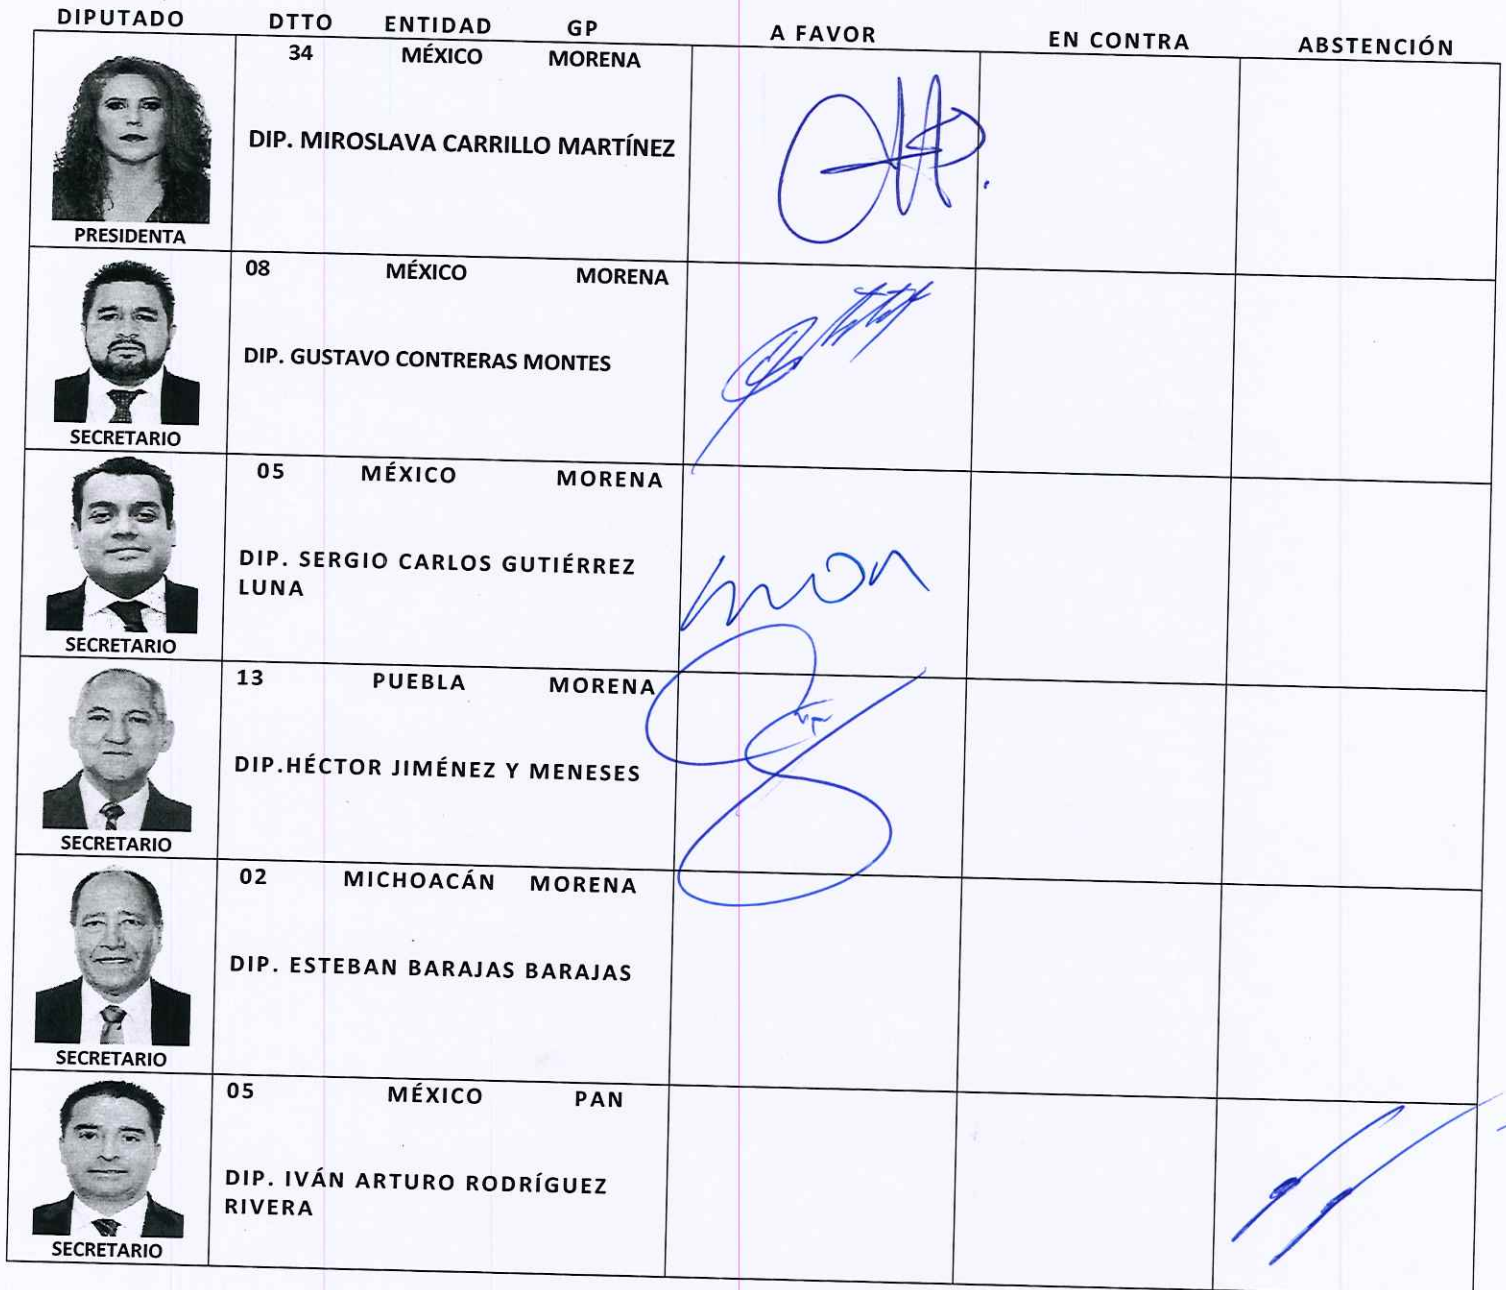 DIPUTADO DTTO ENTIDAD GP A FAVOR EN CONTRA ABSTENCIÓN
34 MÉXICO MORENA
DIP. MIROSLAVA CARRILLO MARTÍNEZ
PRESIDENTA
08 MÉXICO MORENA
DIP. GUSTAVO CONTRERAS MONTES
SECRETARIO
05 MÉXICO MORENA
DIP. SERGIO CARLOS GUTIÉRREZ
LUNA
SECRETARIO
13 PUEBLA MORENA
DIP.HÉCTOR JIMÉNEZ Y MENESES
SECRETARIO
02 MICHOACÁN MORENA
DIP. ESTEBAN BARAJAS BARAJAS
SECRETARIO
05 MÉXICO PAN
DIP. IVÁN ARTURO RODRÍGUEZ
RIVERA
SECRETARIO